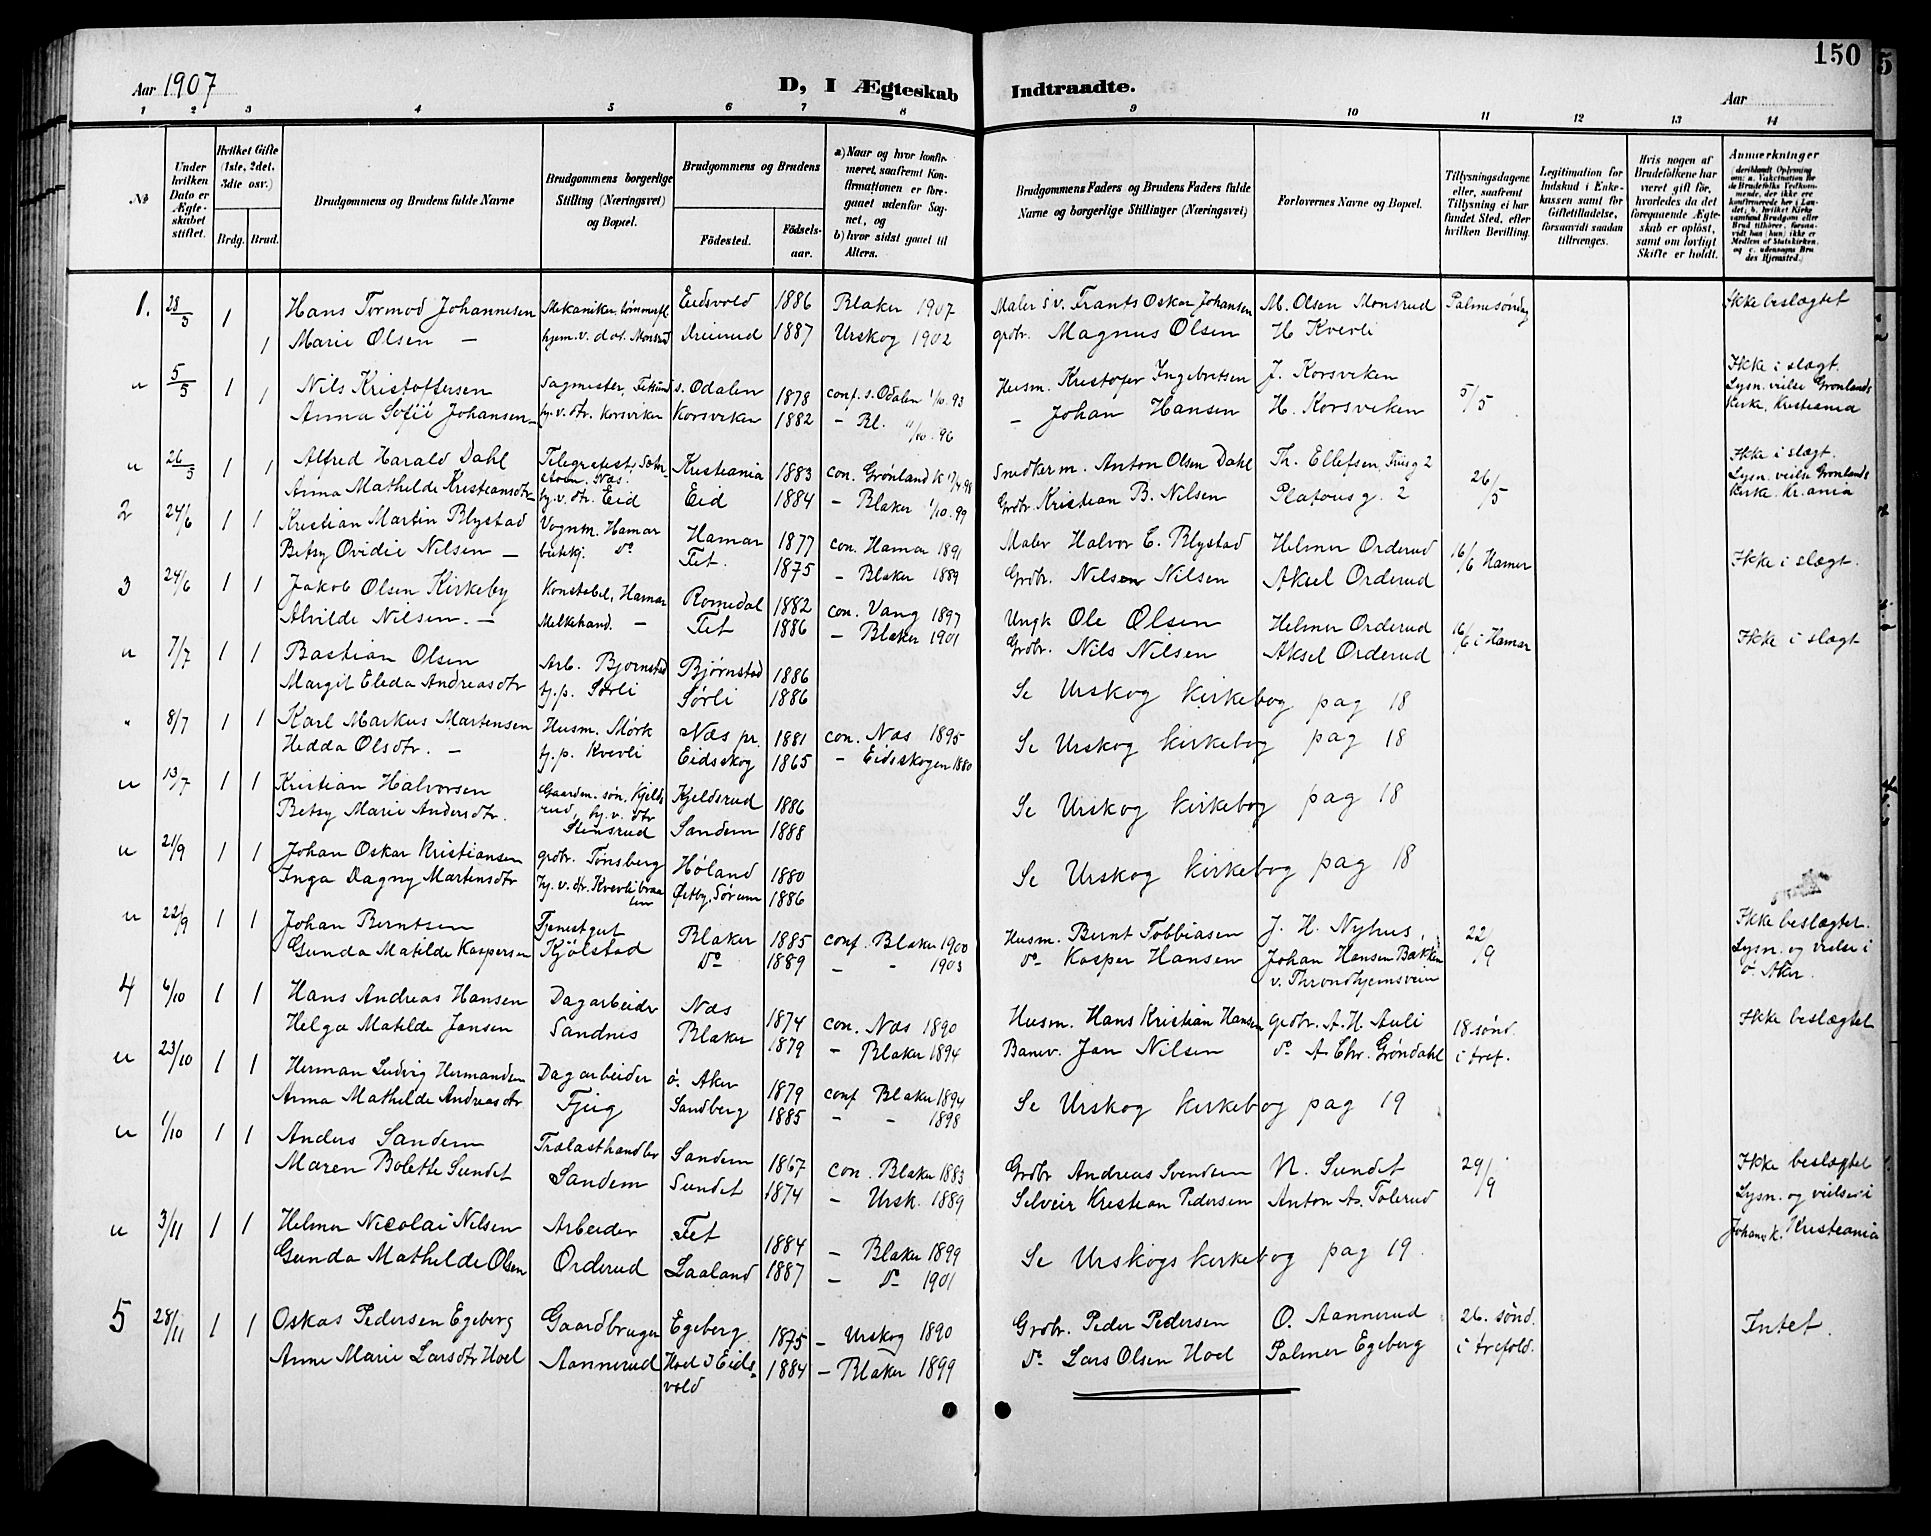 150
Aar 1907
D, I Ægteskab Indtraadte.
Aar
1 2 3 4 5 6 7 8 9 10 11 12 13 14
№
Under hvilken Dato er Ægteskabet stiftet.
Hvilket Gifte (1ste, 2det, 3die osv.)
Brdg. Brud.
Brudgommens og Brudens fulde Navne
Brudgommens borgerlige Stilling (Næringsvei) og Bopæl.
Brudgommens og Brudens
Fødested.
Fødselsaar.
a) Naar og hvor konfirmeret, saafremt Konfirmationen er foregaaet udenfor Sognet, og
b) hvor sidst gaaet til Alters.
Brudgommens Faders og Brudens Faders fulde Navne og borgerlige Stillinger (Næringsvei)
Forlovernes Navne og Bopæl.
Tillysningsdagene eller, saafremt Tillysning ei har fundet Sted, efter hvilken Bevilling.
Legitimation for Indskud i Enkekassen samt for Giftetilladelse, forsaavidt saadan tiltrænges.
Hvis nogen af Brudefolkene har været gift før, hvorledes da det foregaaende Ægteskab er opløst, samt om lovligt Skifte er holdt.
Anmærkninger
1. 28/3 1 Hans Tormod Johannesen Mekaniker, Eidsvold 1886 Blaker 1907 Maler Frants Oskar Johansen M. Olsen Monsrud Palmesøndag Ikke beslægtet
1 Marie Olsen — hjem. v. d. 1887 Urskog 1902 grdbr. Magnus Olsen H Kverli
" 5/5 1 1 Nils Kristoffersen Sagmester, Fetsund s. Odalen 1878 conf. s. Odalen 1/10.93 Husm. Kristofer Ingebretsen J. Korsviken 5/5 Ikke i slægt.
Anna Sofie Johansen — hj. v. dtr. Korsviken Korsviken 1882 — Bl. 11/10.96 — Johan Hansen H. Korsviken Lysn. vielse Grønlands Kirke, Kristiania
" 26/5 1 1 Alfred Harald Dahl Telegrafist, Kristiania 1883 con. Grønland k Snedkerm. Anton Olsen Dahl Th. Ellefsen, 26/5 Ikke i slægt.
Anna Mathilde Kristiansdtr — hj. v. dtr. Eid Eid 1884 — Blaker 1/10.99 Grdbr. Kristian B. Nilsen Platousg. 2 Lysn. vielse Grønlands Kirke. Kr.ania
2 24/6 1 1 Kristian Martin Blystad Vognm. Hamar Hamar 1877 con. Hamar 1891 Maler Halvor E. Blystad Helmer Orderud 16/6 Hamar Ikke i slægt.
Betsy Ovidie Nilsen — do Fet. 1875 — Blaker 1889 Grdbr. Nilsen Nilsen Aksel Orderud
3 24/6 1 1 Jakob Olsen Kirkeby Konstabel, Hamar Romedal 1882 con. Vang 1897 Ungk Ole Olsen Helmer Orderud 16/6 i Hamar Ikke i slægt
Alvilde Nilsen. — Melkehand. — Fet 1886 — Blaker 1901 Grdbr. Nils Nilsen Aksel Orderud
" 7/7 1 1 Bastian Olsen Arb. Bjørnstad Bjørnstad 1886
Margit Eleda Andreasdtr tj. p. Sørli Sørli 1886 Se Urskog kirkebog pag 18
" 8/7 1 1 Karl Markus Martensen Husm. Mørk Næs pr. 1881 con. Næs 1895 Se Urskog kirkebog pag 18
Hedda Olsdtr. — tj. p. Kverli Eidsskog 1865 — Eidsskogen 1880
" 13/7 1 1 Kristian Halvorsen Gaardm. søn, Kjeldsrud, Kjeldsrud 1886 Se Urskog kirkebog pag 18
Betsy Marie Andersdtr. hj. v. dtr Stensrud Sandem 1888
" 21/9 1 1 Johan Oskar Kristiansen grdbr. Tønsberg Høland 1880 Se Urskog kirkebog pag 18
Inga Dagny Martensdtr hj. v. dtr. Kverlibraaten Østby, Sørum 1886
" 22/9 1 1 Johan Berntsen Tjenestgut Blaker 1885 conf. Blaker 1900 Husm. Bernt Tobbiasen J. H. Nyhus, 22/9 Ikke beslægtet.
Gunda Matilde Kaspersen Kjølstad do 1889 — — 1903 do Kasper Hansen Johan Hansen Bakken v. Throndhjemsveien Lysn. og vielse i ø. Aker.
4 6/10 1 1 Hans Andreas Hansen Dagarbeider Næs 1874 con. Næs 1890 Husm. Hans Kristian Hansen grdbr. A. H. Auli 18 sønd. i tref. Ikke beslægtet
Helga Matilde Jansen Sandnes Blaker 1879 — Blaker 1894 Banev. Jan Nilsen do A. Chr. Grøndahl
" 23/10 1 1 Herman Ludvig Hermansen Dagarbeider ø. Aker 1879 conf Blaker 1894 Se Urskog kirkebog pag 19
Anna Mathilde Andreasdtr Fjug Sandberg 1885 — — 1898
" 1/10 1 1 Anders Sandem Trælasthandler Sandem 1867 con. Blaker 1883 Grdbr Andreas Svendsen N. Sundet 29/9 Ikke beslægtet
Maren Bolette Sundet Sandem Sundet 1874 — Ursk. 1889 Selveir Kristian Pedersen Anton A. Tolerud Lysn. og vielse i Johans k. Kristiania
" 3/11 1 1 Helmer Nicolai Nilsen Arbeider Fet 1884 — Blaker 1899 Se Urskogs kirkebog pag 19.
Gunda Mathilde Olsen Orderud Laaland 1887 — do 1901
5 28/11 1 1 Oskar Pedersen Egeberg Gaardbruger Egeberg 1875 — Urskog 1890 Grdbr. Peder Pedersen O. Aannerud 26. sønd. i trefold. Intet.
Anne Marie Larsdtr Hoel Aannerud Hoel i Eidsvold 1884 — Blaker 1899 do Lars Olsen Hoel Palmer Egeberg